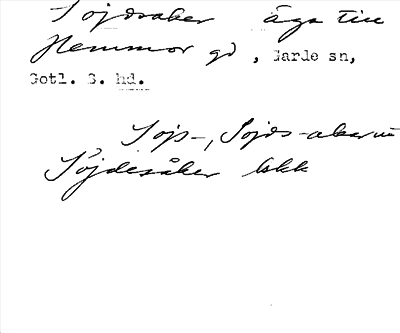 Söjdsaker äga till
Hemmor gd, Garde sn,
Gotl. S. hd.
Söjs-, Söjds-akern
Söjdesåker lskk